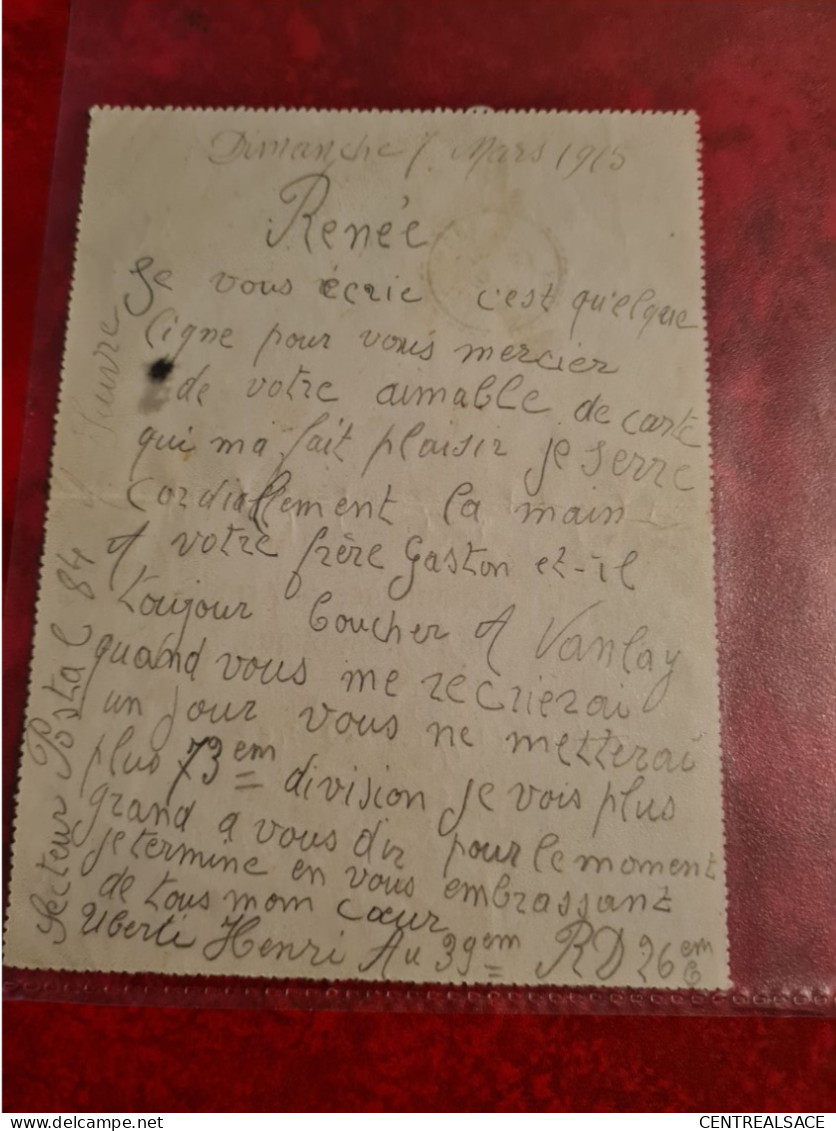 Dimanche 7. Mars 1915
Renée
Je vous écrie c'est qu'elque
ligne pour vous mercier
de votre aimable de carte
qui ma fait plaisir je serre
cordiallement la main
A votre frère Gaston et-il
toujour boucher A Vanlay
quand vous me recrierai
un jour vous ne metterai
plus 73em division je vois plus
grand a vous dir pour le moment
je termine en vous embrassant
de tous mom cœur
Uberti Henri Au 39em RD 26em C
Secteur Postal 84
CENTREALSACE